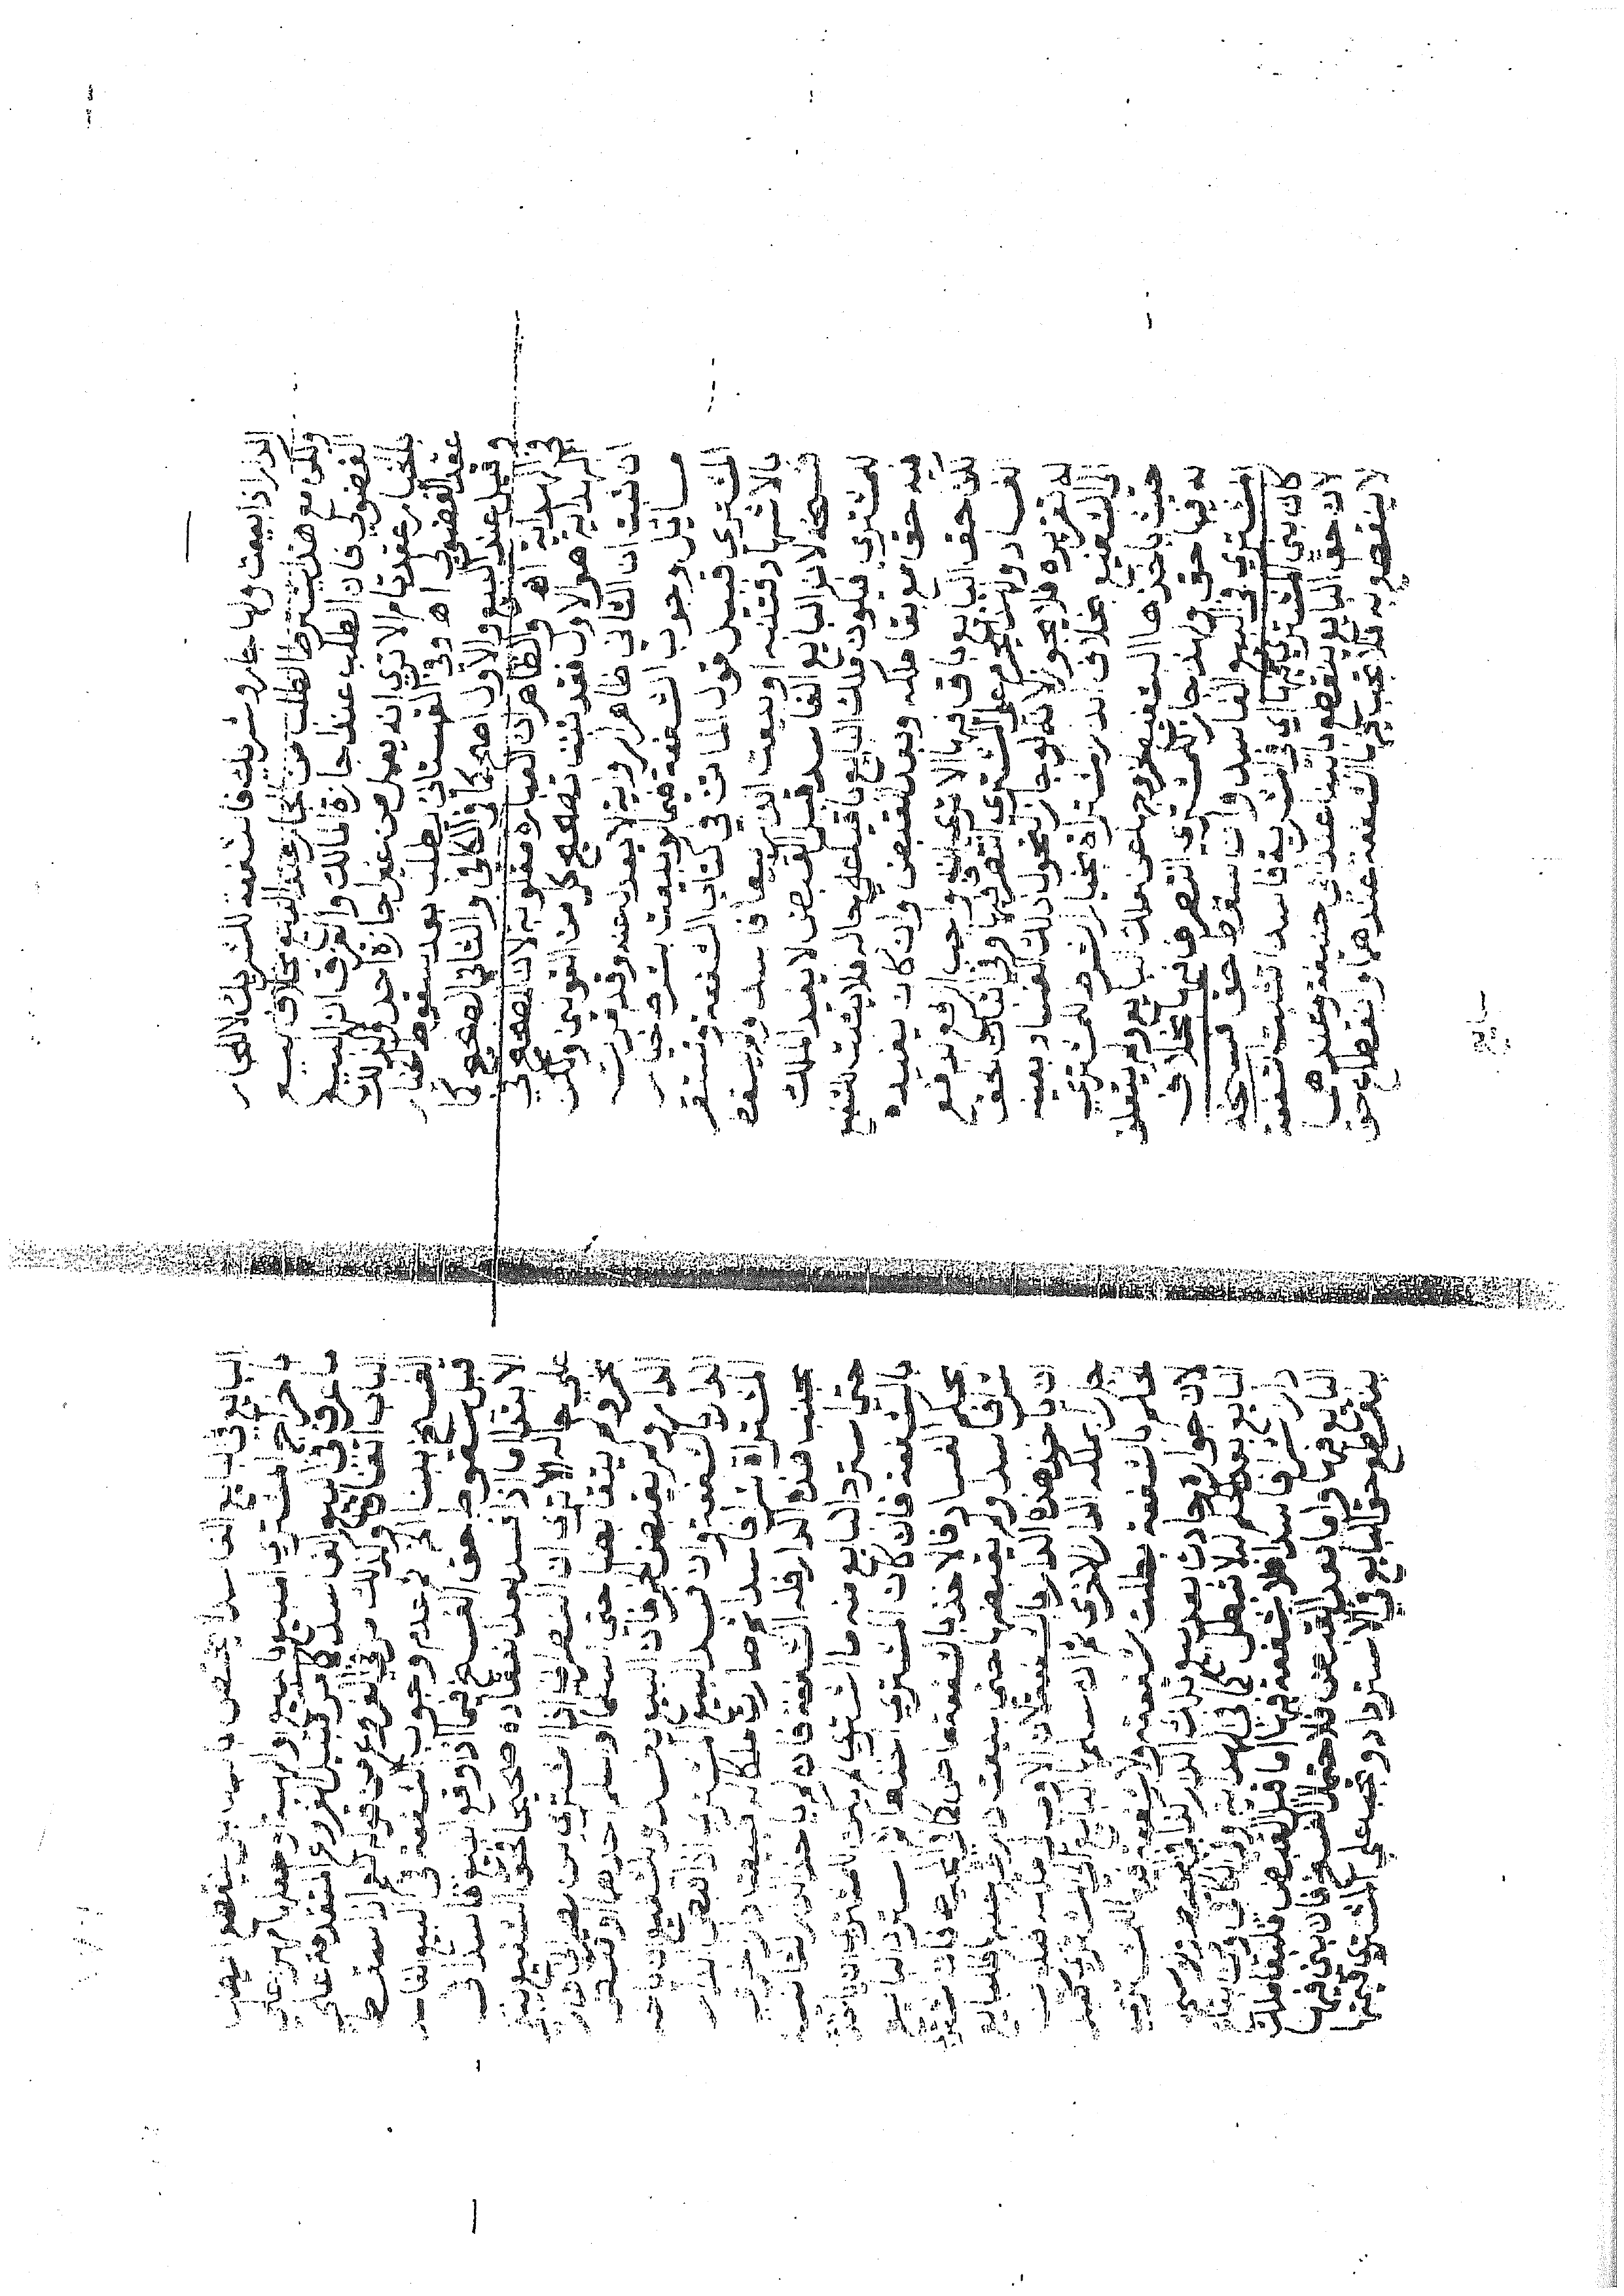 الدار اذا بيعت ولها جار وشريك فالشفعة للشريك لا للجار
ولكن مع هذا يشترط الطلب من الجار عند البيع بخلاف بيع
الفضولي فان الطلب عند اجازة المالك والفرق ان البيع
بالخيار عقد تام الا تري انه يعمل من غير اجازة احد ولا كذلك
عقد الفضولي اه وفي القهستاني يطلب بعد سقوط الخيار
وقيل عند البيع والاول اصح كما في الكافي والثاني الصحيح كما
في الهداية اه والظاهر ان العبارة مقلوبة لان الصحيح في
الهداية هو الاول فقد ثبت تصحيح كل من القولين ولكن
ان ثبت ان الثاني ظاهر الرواية لا يعدل عنه وقد مرت
مسايل وجوب الشفعة فيما لو بيعت بشرط خيار
المشتري قبيل قول الماتن في كتاب الشفعة وتستقر
بالاشهاد فتنبه او بيعت الدار بيعا فاسدا ولم يسقط
فسخه لان البايع الفاسد قبل القبض لا يفيد الملك
للمشتري فيكون ملك البايع باقيا علي حاله فلا يثبت للشفيع
فيه حق مع بقا ملكه وبعد القبض وان كان يفيده
لكن حق البايع باق فيها الا تري انه واجب الرفع لدفع
الفساد ولهذا يحرم علي المشتري التصرف فيها وفي اثبات الحق
له تقريره فلا يجوز لانه لو جاز تحول ذلك الفساد بعينه
الي الشفيع بخلاف الدار المشتراة بخيار الشرط للمشتري
حيث ياخذها الشفيع بخروجها عن ملك البايع ولم يتعلق
له فيها حق ولهذا جاز للمشتري التصرف فيها بخلاف
المشتري في البيع الفاسد وان سقط حق فسخه
كان بني المشتري فيها اي في المشرية فاسدا تثبت الشفعة
لان حق البايع ينقطع بالبنا عند ابي حنيفة وعندهما
لا ينقطع به فلا تجب فيها الشفعة عندهما وانقطاع حق
البايع في البايع الفاسد لا يختص بالبنا بل ينقطع ايضا
باخراج المشتري المبيع بالبيع والهبة او جعلها مهرا علي
ما عرف في البيع الفاسد
الفسخ بالبنا عدم وجوب الشفعة في البيع الفاسد
قبل سقوط حق الفسخ فيما اذا وقع البيع فاسدا في
الابتدا اما اذا فسد بعد انعقاده صحيحا فحق الشفيع
علي حاله الا تري ان النصراني اذا اشتري من نصراني دارا
بخمر ولم يتقابضا حتي اسلما او اسلم احدهما او قبض
الدار ولم يقبض الخمر فان البيع يفسد وللشفيع ان ياخذ
الدار بالشفعة وان فسد البيع المشتري اذا قبض الدار
المشتراة شرا فاسدا وصارت ملكا له فبيعت دار
بجنب هذه الدار فله الشفعة فان لم ياخذ الدار الثانية
حتي استرد البايع منه ما اشتري لم يكن للمشتري ان ياخذ
بالشفعة فان كان المشتري اخذها ثم استرد البايع
بحكم الفساد فالاخذ بالشفعة ماض
شرا فاسدا ولم يقبضها حتي بيعت دار بجنبها فللبايع
ان ياخذ هذه الدار بالشفعة لان الاولي في ملكه فيكون
جارا بملكه الدار الاخري فان سلمها البايع الي المشتري قبل
الحكم بالشفعة بطلت شفعته ولا شفعة فيها للمشتري
لان جواره حادث بعد بيع تلك الدار
البايع بعد الحكم له لا تبطل كما في الهداية وفي الكافي
دارا شرا فاسدا فلا شفعة فيها اما قبل القبض فلبقا ملك
البايع فيها واما بعد القبض فلاحتمال الفسخ فان بني فيها
ينقطع حق البايع في الاسترداد وتجب علي المشتري قيمتها